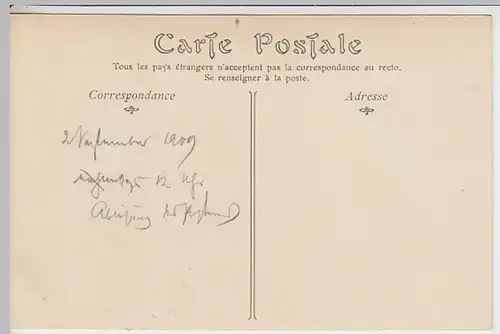 Carte Postale
Tous les pays étrangers n'acceptent pas la correspondance au recto.
Se renseigner à la poste.
Correspondance
Adresse
2 September 1909
12 Uhr